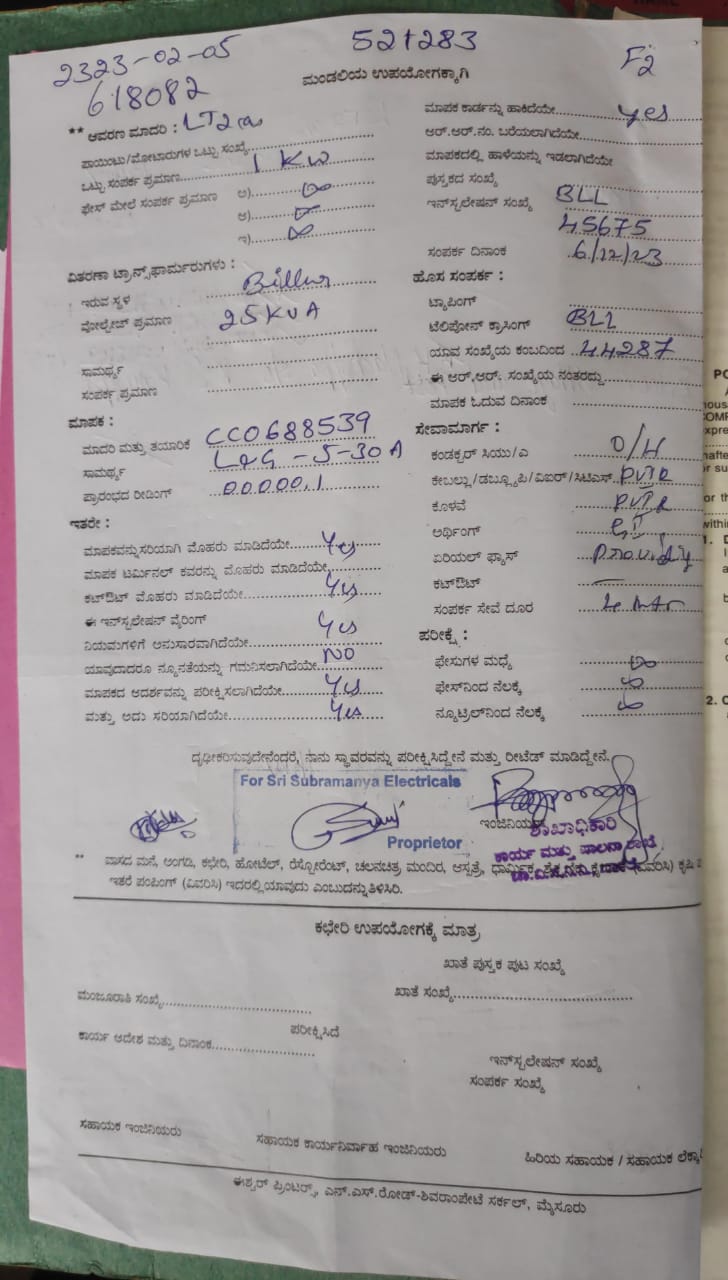 2323-02-05
618082
521283
F2
ಮಂಡಲಿಯ ಉಪಯೋಗಕ್ಕಾಗಿ
** ಆವರಣ ಮಾದರಿ : LT2(a)
ಪಾಯಿಂಟು/ಮೋಟಾರುಗಳ ಒಟ್ಟು ಸಂಖ್ಯೆ
ಒಟ್ಟು ಸಂಪರ್ಕ ಪ್ರಮಾಣ 1 KW
ಫೇಸ್ ಮೇಲೆ ಸಂಪರ್ಕ ಪ್ರಮಾಣ ಅ) ∞
ಆ) ∞
ಇ) ∞
ವಿತರಣಾ ಟ್ರಾನ್ಸ್‌ಫಾರ್ಮರುಗಳು :
ಇರುವ ಸ್ಥಳ
ವೋಲ್ಟೇಜ್ ಪ್ರಮಾಣ 25 KVA
ಸಾಮರ್ಥ್ಯ
ಸಂಪರ್ಕ ಪ್ರಮಾಣ
ಮಾಪಕ :
ಮಾದರಿ ಮತ್ತು ತಯಾರಿಕೆ CC0688539
ಸಾಮರ್ಥ್ಯ L&G - 5-30 A
ಪ್ರಾರಂಭದ ರೀಡಿಂಗ್ 00000.1
ಇತರೇ :
ಮಾಪಕವನ್ನು ಸರಿಯಾಗಿ ಮೊಹರು ಮಾಡಿದೆಯೇ Yes
ಮಾಪಕ ಟರ್ಮಿನಲ್ ಕವರನ್ನು ಮೊಹರು ಮಾಡಿದೆಯೇ
ಕಟ್‌ಔಟ್ ಮೊಹರು ಮಾಡಿದೆಯೇ Yes
ಈ ಇನ್‌ಸ್ಟಲೇಷನ್ ವೈರಿಂಗ್
ನಿಯಮಗಳಿಗೆ ಅನುಸಾರವಾಗಿದೆಯೇ Yes
ಯಾವುದಾದರೂ ನ್ಯೂನತೆಯನ್ನು ಗಮನಿಸಲಾಗಿದೆಯೇ NO
ಮಾಪಕದ ಆದರ್ಶವನ್ನು ಪರೀಕ್ಷಿಸಲಾಗಿದೆಯೇ Yes
ಮತ್ತು ಅದು ಸರಿಯಾಗಿದೆಯೇ Yes
ಮಾಪಕ ಕಾರ್ಡನ್ನು ಹಾಕಿದೆಯೇ yes
ಆರ್.ಆರ್.ನಂ. ಬರೆಯಲಾಗಿದೆಯೇ
ಮಾಪಕದಲ್ಲಿ ಹಾಳೆಯನ್ನು ಇಡಲಾಗಿದೆಯೇ
ಪುಸ್ತಕದ ಸಂಖ್ಯೆ
ಇನ್‌ಸ್ಟಲೇಷನ್ ಸಂಖ್ಯೆ BLL
45675
ಸಂಪರ್ಕ ದಿನಾಂಕ 6/12/23
ಹೊಸ ಸಂಪರ್ಕ :
ಟ್ಯಾಪಿಂಗ್
ಟೆಲಿಫೋನ್ ಕ್ರಾಸಿಂಗ್ BLL
ಯಾವ ಸಂಖ್ಯೆಯ ಕಂಬದಿಂದ 44287
ಈ ಆರ್.ಆರ್. ಸಂಖ್ಯೆಯ ನಂತರದ್ದು
ಮಾಪಕ ಓದುವ ದಿನಾಂಕ
ಸೇವಾಮಾರ್ಗ :
ಕಂಡಕ್ಟರ್ ಸಿಯು/ಎ O/H
ಕೇಬಲ್ಲು/ಡಬ್ಲ್ಯೂಪಿ/ವಿಐಆರ್/ಸಿಟಿಎಸ್
ಕೊಳವೆ
ಅರ್ಥಿಂಗ್ GI
ಏರಿಯಲ್ ಫ್ಯೂಸ್
ಕಟ್‌ಔಟ್ —
ಸಂಪರ್ಕ ಸೇವೆ ದೂರ
ಪರೀಕ್ಷೆ :
ಫೇಸುಗಳ ಮಧ್ಯೆ ∞
ಫೇಸ್‌ನಿಂದ ನೆಲಕ್ಕೆ ∞
ನ್ಯೂಟ್ರಿಲ್‌ನಿಂದ ನೆಲಕ್ಕೆ ∞
ದೃಢೀಕರಿಸುವುದೇನೆಂದರೆ, ನಾನು ಸ್ಥಾವರವನ್ನು ಪರೀಕ್ಷಿಸಿದ್ದೇನೆ ಮತ್ತು ರೀಟೆಡ್ ಮಾಡಿದ್ದೇನೆ.
For Sri Subramanya Electricals
Proprietor
ಇಂಜಿನಿಯರ್
ಶಾಖಾಧಿಕಾರಿ
ಕಾರ್ಯ ಮತ್ತು ಪಾಲನಾ ಶಾಖೆ
** ವಾಸದ ಮನೆ, ಅಂಗಡಿ, ಕಛೇರಿ, ಹೋಟೆಲ್, ರೆಸ್ಟೋರೆಂಟ್, ಚಲನಚಿತ್ರ ಮಂದಿರ, ಆಸ್ಪತ್ರೆ, ಧಾರ್ಮಿಕ (ವಿವರಿಸಿ) ಕೃಷಿ
ಇತರೆ ಪಂಪಿಂಗ್ (ವಿವರಿಸಿ) ಇದರಲ್ಲಿ ಯಾವುದು ಎಂಬುದನ್ನು ತಿಳಿಸಿರಿ.
ಕಛೇರಿ ಉಪಯೋಗಕ್ಕೆ ಮಾತ್ರ
ಖಾತೆ ಪುಸ್ತಕ ಪುಟ ಸಂಖ್ಯೆ
ಮಂಜೂರಾತಿ ಸಂಖ್ಯೆ
ಖಾತೆ ಸಂಖ್ಯೆ
ಪರೀಕ್ಷಿಸಿದೆ
ಕಾರ್ಯ ಆದೇಶ ಮತ್ತು ದಿನಾಂಕ
ಇನ್‌ಸ್ಟಲೇಷನ್ ಸಂಖ್ಯೆ
ಸಂಪರ್ಕ ಸಂಖ್ಯೆ
ಸಹಾಯಕ ಇಂಜಿನಿಯರು
ಸಹಾಯಕ ಕಾರ್ಯನಿರ್ವಾಹ ಇಂಜಿನಿಯರು
ಹಿರಿಯ ಸಹಾಯಕ / ಸಹಾಯಕ
ಈಶ್ವರ್ ಪ್ರಿಂಟರ್ಸ್, ಎನ್.ಎಸ್.ರೋಡ್-ಶಿವರಾಂಪೇಟೆ ಸರ್ಕಲ್, ಮೈಸೂರು